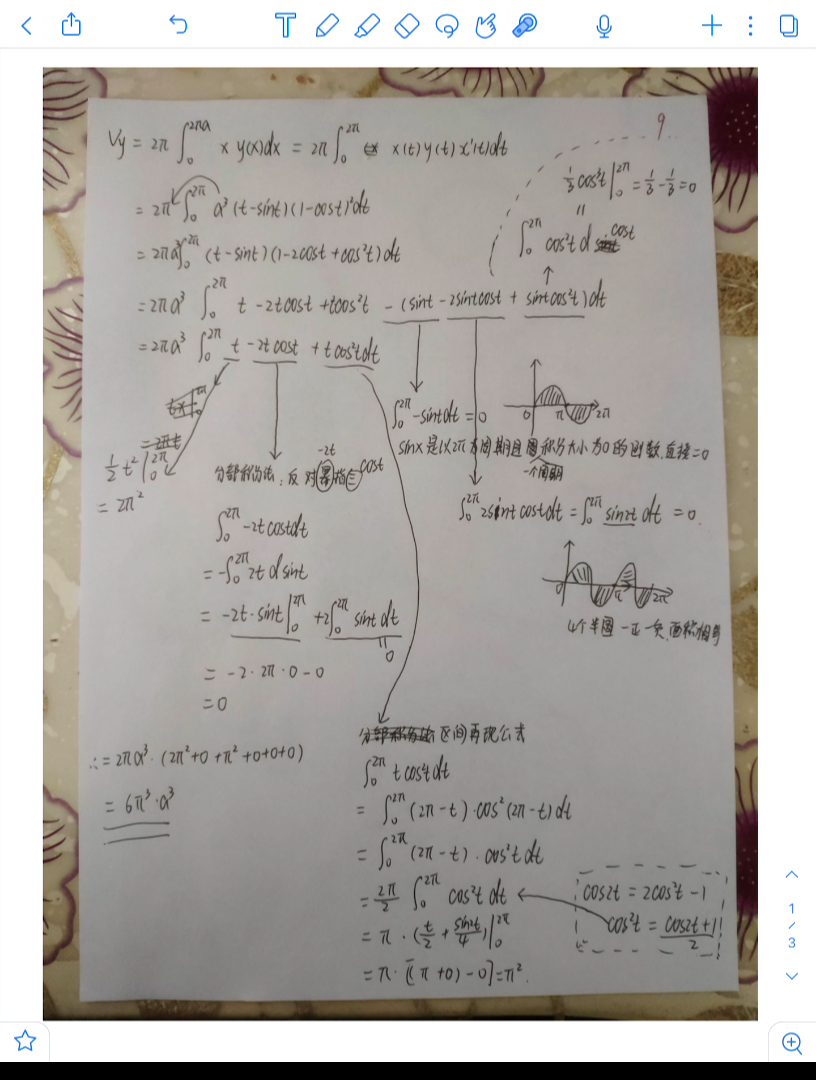 9
Vy = 2π ∫₀^{2πa} x y(x)dx = 2π ∫₀^{2π} x(t) y(t) x'(t)dt
= 2π ∫₀^{2π} a³ (t-sint)(1-cost)²dt
= 2πa³∫₀^{2π} (t-sint)(1-2cost+cos²t)dt
= 2πa³ ∫₀^{2π} t - 2tcost + tcos²t - (sint - 2sintcost + sintcos²t)dt
= 2πa³ ∫₀^{2π} t - 2tcost + tcos²tdt
⅓cos³t|₀^{2π} = ⅓ - ⅓ = 0
||
∫₀^{2π} cos²t d cost
½t²|₀^{2π}
= 2π²
分部积分法：反对幂指三
-2t
cost
∫₀^{2π} -2tcostdt
= -∫₀^{2π} 2t d sint
= -2t·sint|₀^{2π} + 2∫₀^{2π} sint dt
||
0
= -2·2π·0-0
= 0
∫₀^{2π} -sintdt = 0
0 π 2π
sinx是以2π为周期且积分大小为0的函数,直接=0
一个周期
∫₀^{2π} 2sint costdt = ∫₀^{2π} sin2t dt = 0.
0 π 2π
4个半圆 一正一负,面积相等
区间再现公式
∫₀^{2π} tcos²tdt
= ∫₀^{2π} (2π-t)·cos²(2π-t)dt
= ∫₀^{2π} (2π-t)·cos²t dt
= 2π/2 ∫₀^{2π} cos²t dt
= π·(t/2 + sin2t/4)|₀^{2π}
= π·[(π+0)-0] = π².
cos2t = 2cos²t - 1
cos²t = (cos2t+1)/2
∴ = 2πa³·(2π²+0+π²+0+0+0)
= 6π³·a³
1
/
3